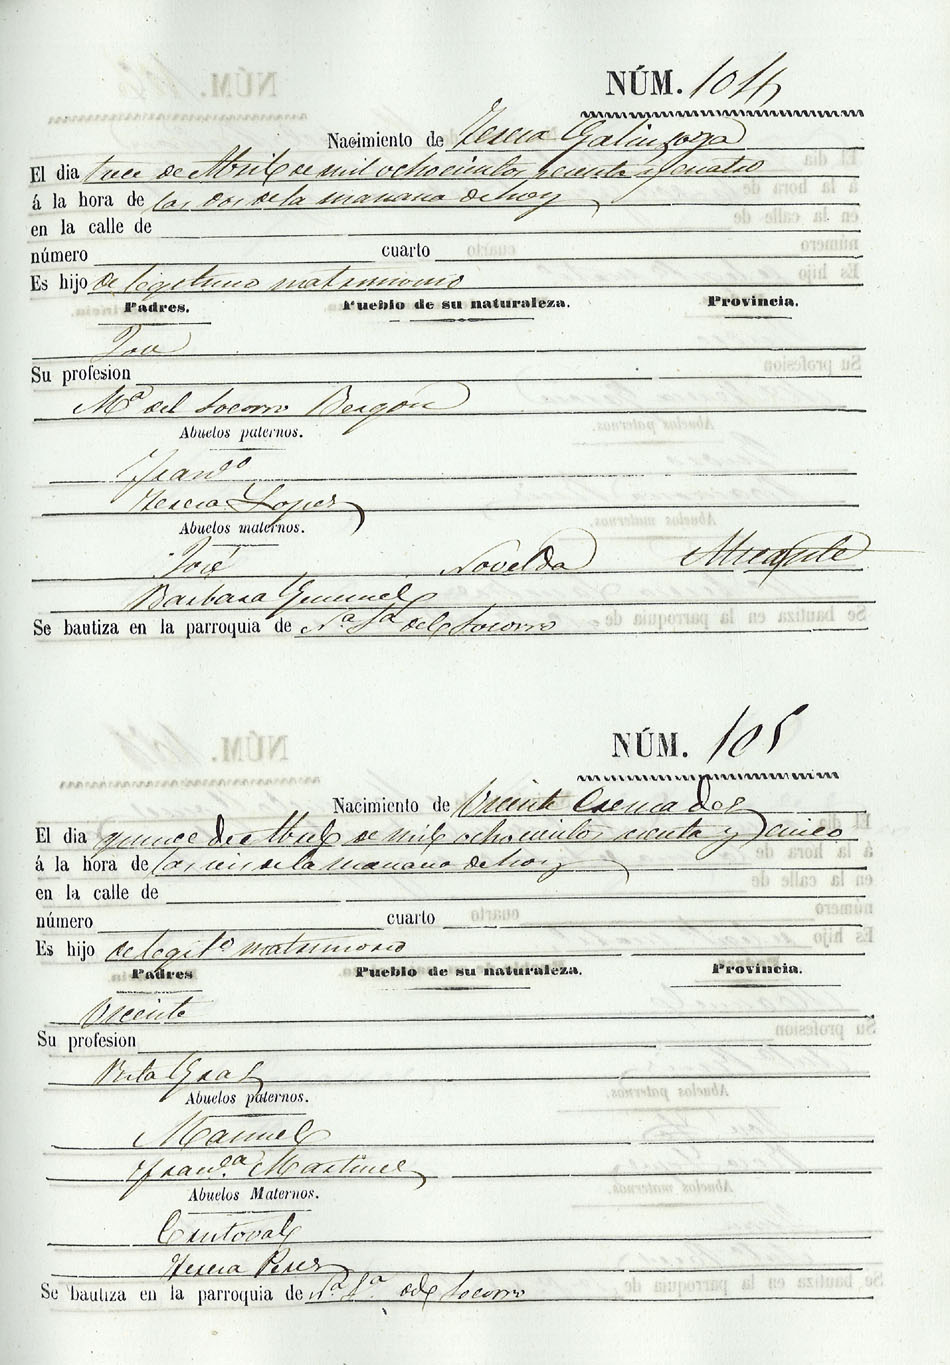 NÚM. 104
Nacimiento de Teresa Galinzoga
El dia trece de Abril de mil ochocientos sesenta y cuatro
á la hora de las dos de la manana de hoy
en la calle de
número cuarto
Es hijo de legitimo matrimonio
Padres. Pueblo de su naturaleza. Provincia.
José
Su profesion
Mª del Socorro Bergón
Abuelos paternos.
Franco
Teresa Lopez
Abuelos maternos.
José Novelda Alicante
Barbara
Se bautiza en la parroquia de Nª Sª del Socorro
NÚM. 105
Nacimiento de Vicente
El dia quince de Abril de mil ochocientos sesenta y cinco
á la hora de las seis de la manana de hoy
en la calle de
número cuarto
Es hijo de legitº matrimonio
Padres Pueblo de su naturaleza. Provincia.
Vicente
Su profesion
Rita Gras
Abuelos paternos.
Manuel
Franca Martinez
Abuelos Maternos.
Cristoval
Teresa Perez
Se bautiza en la parroquia de Nª Sª del Socorro